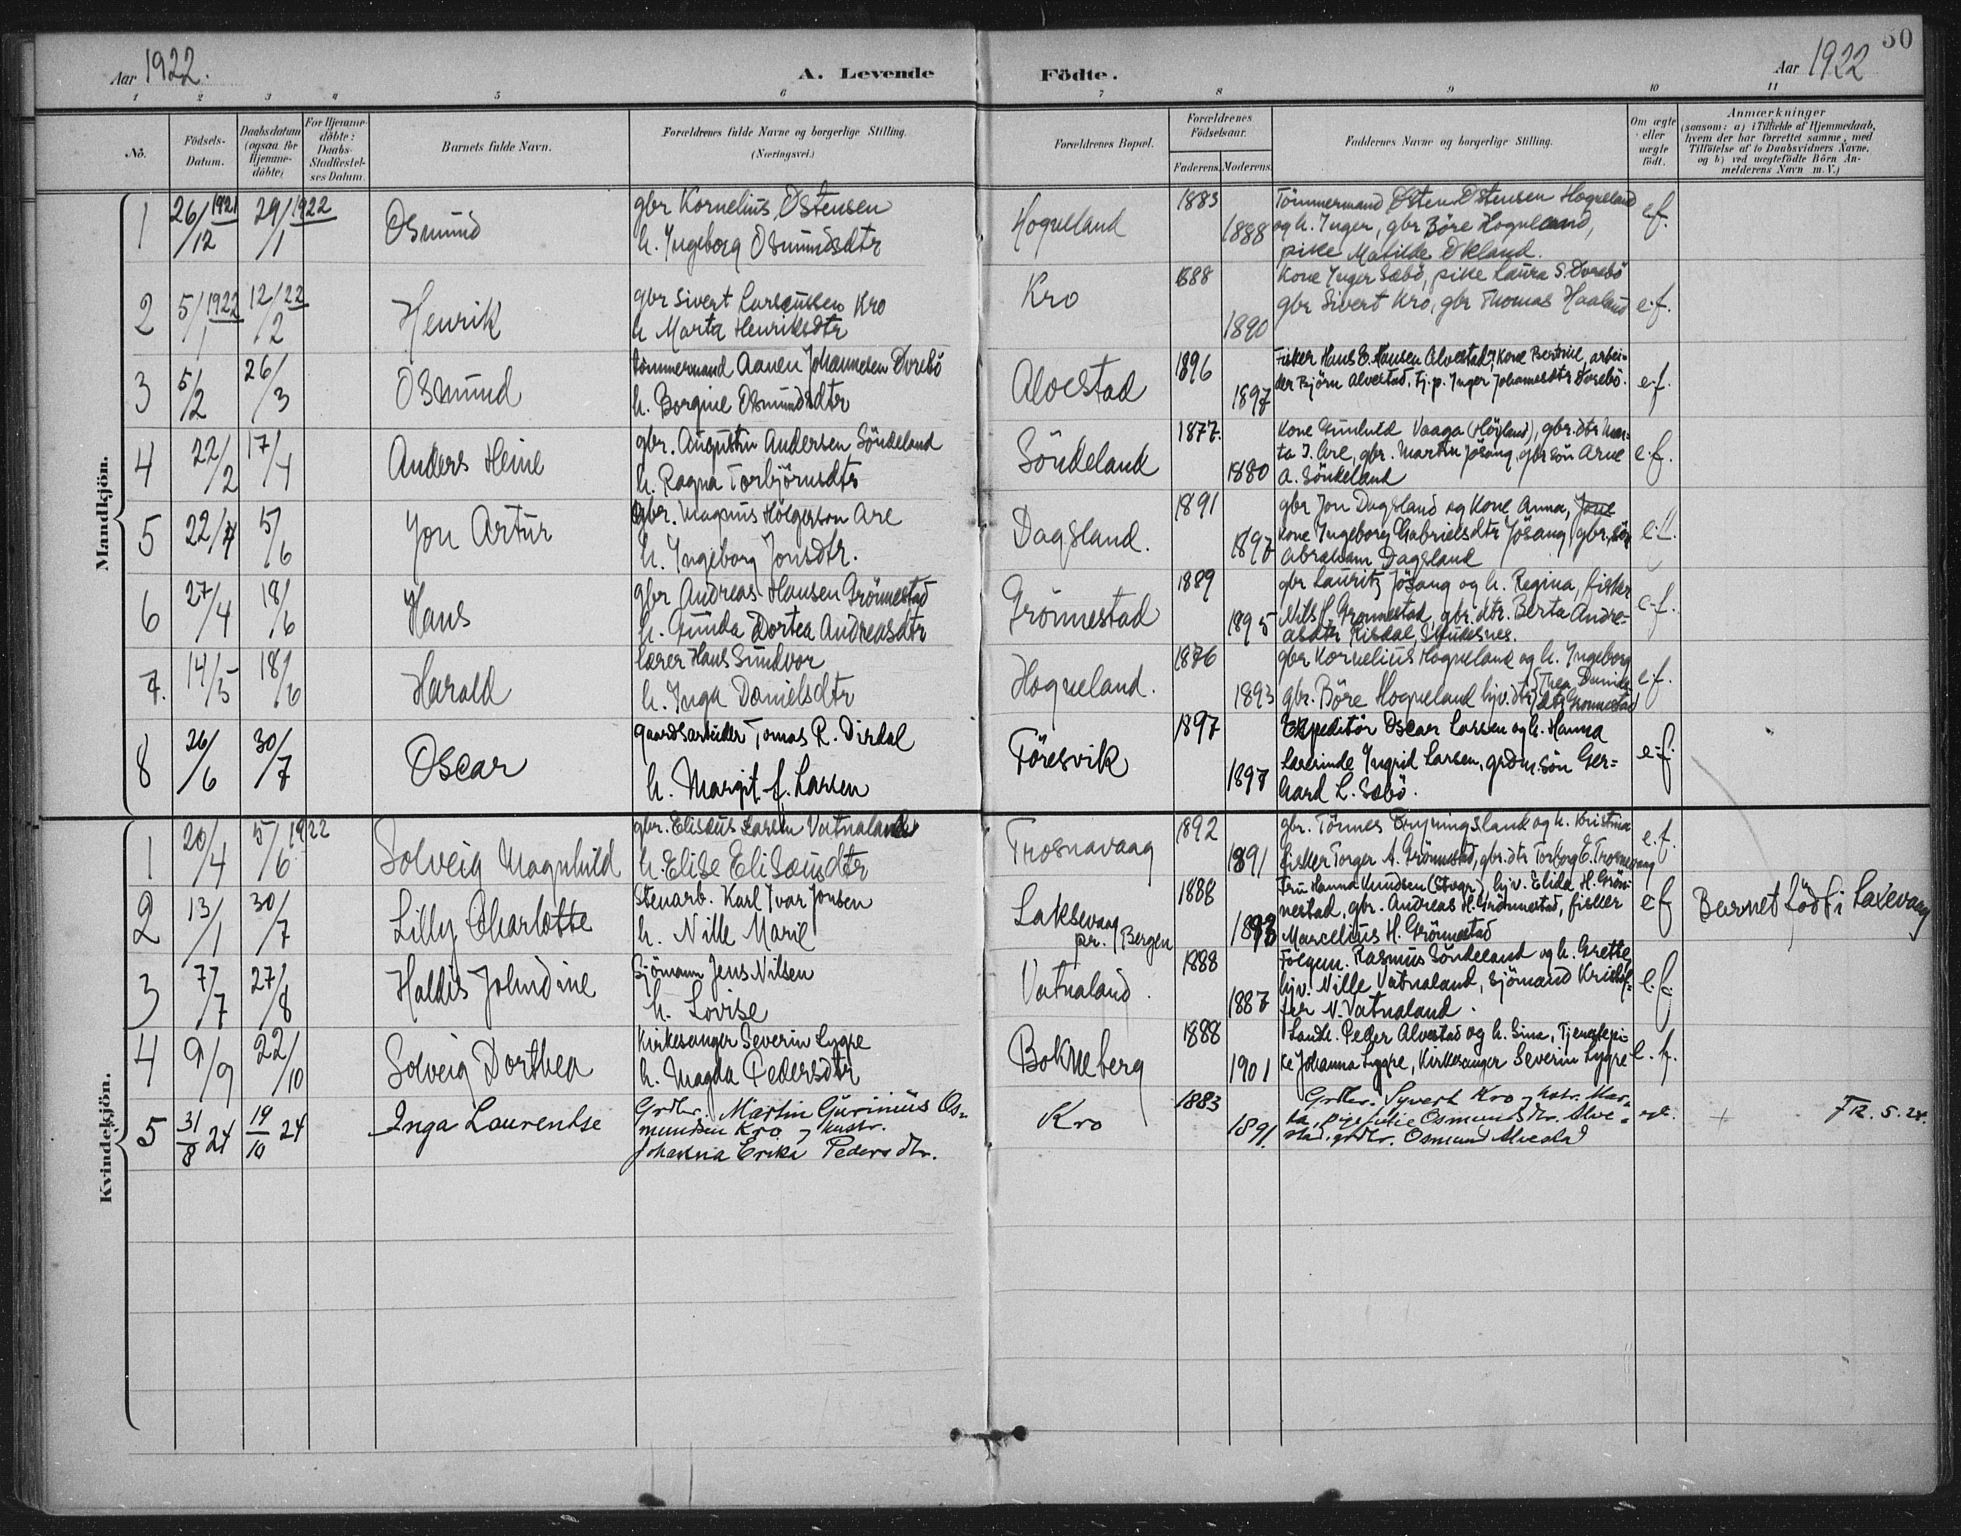 Aar 1922.
A. Levende Födte.
Aar 1922
50
1 2 3 4 5 6 7 8 9 10 11
No.
Födsels-Datum.
Daabsdatum (ogsaa for Hjemme-döbte)
For Hjemme-döbte: Daabs-Stadfæstel-ses Datum.
Barnets fulde Navn.
Forældrenes fulde Navne og borgerlige Stilling. (Næringsvei.)
Forældrenes Bopæl.
Forældrenes Födselsaar.
Faderens. Moderens.
Faddernes Navne og borgerlige Stilling.
Om ægte eller uægte födt.
Anmærkninger
(saasom: a) i Tilfælde af Hjemmedaab,
hvem der har forrettet samme, med
Tilföielse af to Daabsvidners Navne,
og b) ved uægtefödte Börn An-
melderens Navn m. V.)
Mandkjön.
1 26/12 1921 29/1 1922 Osmund
gbr Kornelius Östensen
h. Ingeborg Osmundsdtr
Hogueland 1883 1888
Tömmermand Östen Östensen Hogueland
og h. Inger, gbr Böre Hogueland,
pike Matilde Økland.
e.f.
2 5/1 1922 12/2 22 Henrik
gbr Sivert Larsen Kro
h. Marta Henriksdtr
Kro 1888 1890
Kone Inger Sæbö, pike Laura S. Dvrebö
gbr Sivert Kro, gbr Thomas Haaland
e.f.
3 5/2 26/3 Osmund
tömmermand Aanen Johannesen Dvrebö
h. Borgine Osmundsdtr
Alvestad 1896 1897
Fisker Hans E. Hansen Alvestad, Kone Bertine, arbei-
der Björn Alvestad, tj.p. Inger Johannesdtr Dvrebö.
e.f.
4 22/2 17/4 Anders Heine
gbr. Augustin Andersen Söndeland
h. Ragna Torbjörnsdtr
Söndeland 1877. 1880
Kone Gunhild Vaaga (Höyland), gbr.dtr Mar-
ta I. Are, gbr. Martin Jösang, gbr sön Arne
A. Söndeland
e.f.
5 22/4 5/6 Jon Artur
gbr. Magnus Holgerson Are
h. Ingeborg Jonsdtr.
Dagsland. 1891 1897
gbr Jon Dagsland og Kone Anna,
Kone Ingeborg Gabrielsdtr Jösang, gbr. sön
Abraham Dagsland
e.f.
6 27/4 18/6 Hans
gbr Andreas Hansen Grönnestad
h. Gunda Dortea Andreasdtr
Grönnestad 1889 1895
gbr Lauritz Jösang og h. Regina, fisker
Nils H. Grönnestad, gbr. dtr. Berta Andre-
asdtr Risdal, Skudesnes.
e.f.
7. 14/5 18/6 Harald
lærer Hans Sundvor
h. Inga Danielsdtr
Hogueland. 1876 1893
gbr Kornelius Hogueland og h. Ingeborg
gbr. Böre Hogueland hjv. dtr Thea
dtr Grönnestad
e.f.
8 26/6 30/7 Oscar
gaardsarbeider Tomas R. Dirdal
h. Margit f. Larsen
Föresvik 1897 1897
Expeditör Oscar Larsen og h. Hanna
lærerinde Ingrid Larsen, grdm. sön Ger-
hard L. Sæbö.
e.f.
Kvindekjön.
1 20/4 5/6 1922 Solveig Magnhild
gbr. Eliseus Larsen Vatnaland
h. Elise Elisæusdtr
Trosnavaag 1892 1891
gbr. Tönnes Bryningsland og h. Kristina
fisker Torger A. Grönnestad, gbr. dtr Torborg E. Trosnavaag
e.f.
2 13/1 30/7 Lilly Charlotte
Stenarb. Karl Ivar Jonsen
h. Nille Marie
Laksevaag pr. Bergen 1888 1893
Fru Hanna Knudsen (Stvgr), hjv. Elida H. Grön-
nestad, gbr. Andreas H. Grönnestad, fisker
Marcelius H. Grönnestad
e.f.
Barnet födt i Laxevaag
3 7/7 27/8 Haldis Johndine
Sjömann Jens Nilsen
h. Lovise
Vatnaland. 1888 1887
Folgem. Rasmus Söndeland og h. Grette,
hjv. Nille Vatnaland, Sjömand Kristof-
fer N. Vatnaland.
e.f.
4 9/9 22/10 Solveig Dorthea
Kirkesanger Severin Lygre
h. Magda Pedersdtr
Bokneberg 1888 1901
Landh. Peder Alvestad og h. Sina, Tjenestepi-
ke Johanna Lygre, Kirkesanger Severin Lygre
e.f.
5 31/8 24 19/10 24 Inga Laurentse
Grdbr. Martin Gurinius Os-
mundsen Kro og hustr.
Johanna Erika Pedersdtr.
Kro 1883 1891.
Grdbr. Syvert Kro og hstr. Mar-
ta, pige Julie Osmundsdtr. Alve-
stad, grdbr. Osmund Alvestad
+